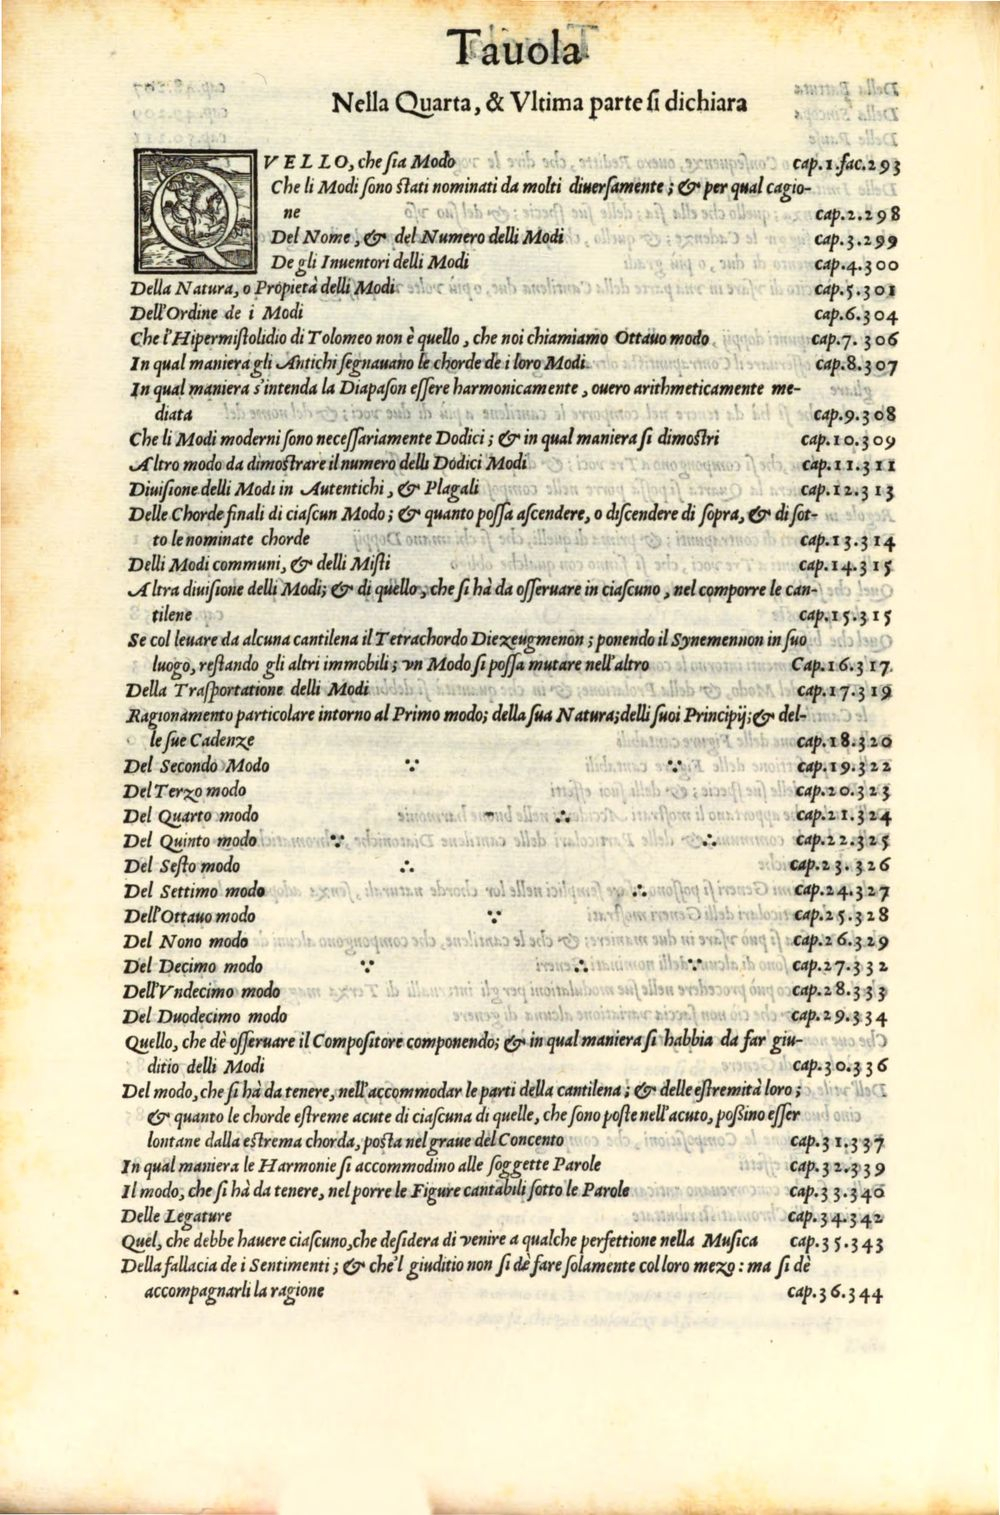 Tauola
Nella Quarta, & Vltima parte si dichiara
QVELLO, che sia Modo cap.1.fac.293
Che li Modi sono stati nominati da molti diuersamente; & per qual cagio-
ne cap.2.298
Del Nome, & del Numero delli Modi cap.3.299
De gli Inuentori delli Modi cap.4.300
Della Natura, o Propietà delli Modi cap.5.301
Dell'Ordine de i Modi cap.6.304
Che l'Hipermistolidio di Tolomeo non è quello, che noi chiamiamo Ottauo modo cap.7.306
In qual maniera gli Antichi segnauano le chorde de i loro Modi cap.8.307
In qual maniera s'intenda la Diapason essere harmonicamente, ouero arithmeticamente me-
diata cap.9.308
Che li Modi moderni sono necessariamente Dodici; & in qual maniera si dimostri cap.10.309
Altro modo da dimostrare il numero delli Dodici Modi cap.11.311
Diuisione delli Modi in Autentichi, & Plagali cap.12.313
Delle Chorde finali di ciascun Modo; & quanto possa ascendere, o discendere di sopra, & di sot-
to le nominate chorde cap.13.314
Delli Modi communi, & delli Misti cap.14.315
Altra diuisione delli Modi; & di quello, che si hà da osseruare in ciascuno, nel comporre le can-
tilene cap.15.315
Se col leuare da alcuna cantilena il Tetrachordo Diezeugmenon; ponendo il Synemennon in suo
luogo, restando gli altri immobili; vn Modo si possa mutare nell'altro Cap.16.317
Della Trasportatione delli Modi cap.17.319
Ragionamento particolare intorno al Primo modo; della sua Natura; delli suoi Principij; & del-
le sue Cadenze cap.18.320
Del Secondo Modo cap.19.322
Del Terzo modo cap.20.323
Del Quarto modo cap.21.324
Del Quinto modo cap.22.325
Del Sesto modo cap.23.326
Del Settimo modo cap.24.327
Dell'Ottauo modo cap.25.328
Del Nono modo cap.26.329
Del Decimo modo cap.27.332
Dell'Vndecimo modo cap.28.333
Del Duodecimo modo cap.29.334
Quello, che dè osseruare il Compositore componendo; & in qual maniera si habbia da far giu-
ditio delli Modi cap.30.336
Del modo, che si hà da tenere, nell'accommodar le parti della cantilena; & delle estremità loro;
& quanto le chorde estreme acute di ciascuna di quelle, che sono poste nell'acuto, possino esser
lontane dalla estrema chorda, posta nel graue del Concento cap.31.337
In qual maniera le Harmonie si accommodino alle soggette Parole cap.32.339
Il modo, che si hà da tenere, nel porre le Figure cantabili sotto le Parole cap.33.340
Delle Legature cap.34.342
Quel, che debbe hauere ciascuno, che desidera di venire a qualche perfettione nella Musica cap.35.343
Della fallacia de i Sentimenti; & che'l giuditio non si dè fare solamente col loro mezo: ma si dè
accompagnarli la ragione cap.36.344